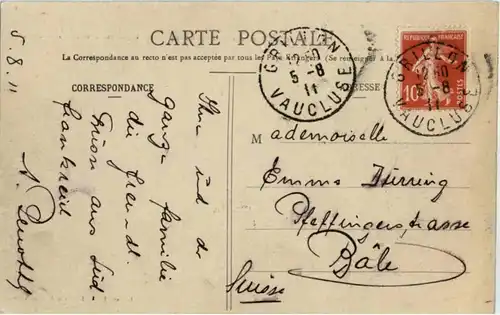 CARTE POSTALE
La Correspondance au recto n'est pas acceptée par tous les Pays Étrangers (Se renseigner à la
CORRESPONDANCE
5.8.11
Ihnen und der
ganze Familie
die freundl.
Grüsse aus Süd-
frankreich
RÉPUBLIQUE FRANÇAISE
10
POSTES
GRILLON
12 30
5 - 8
11
VAUCLUSE
GRILLON
12 30
5 - 8
11
VAUCLUSE
Mademoiselle
Emma Düring
Pfeffingerstrasse
Bâle
Suisse